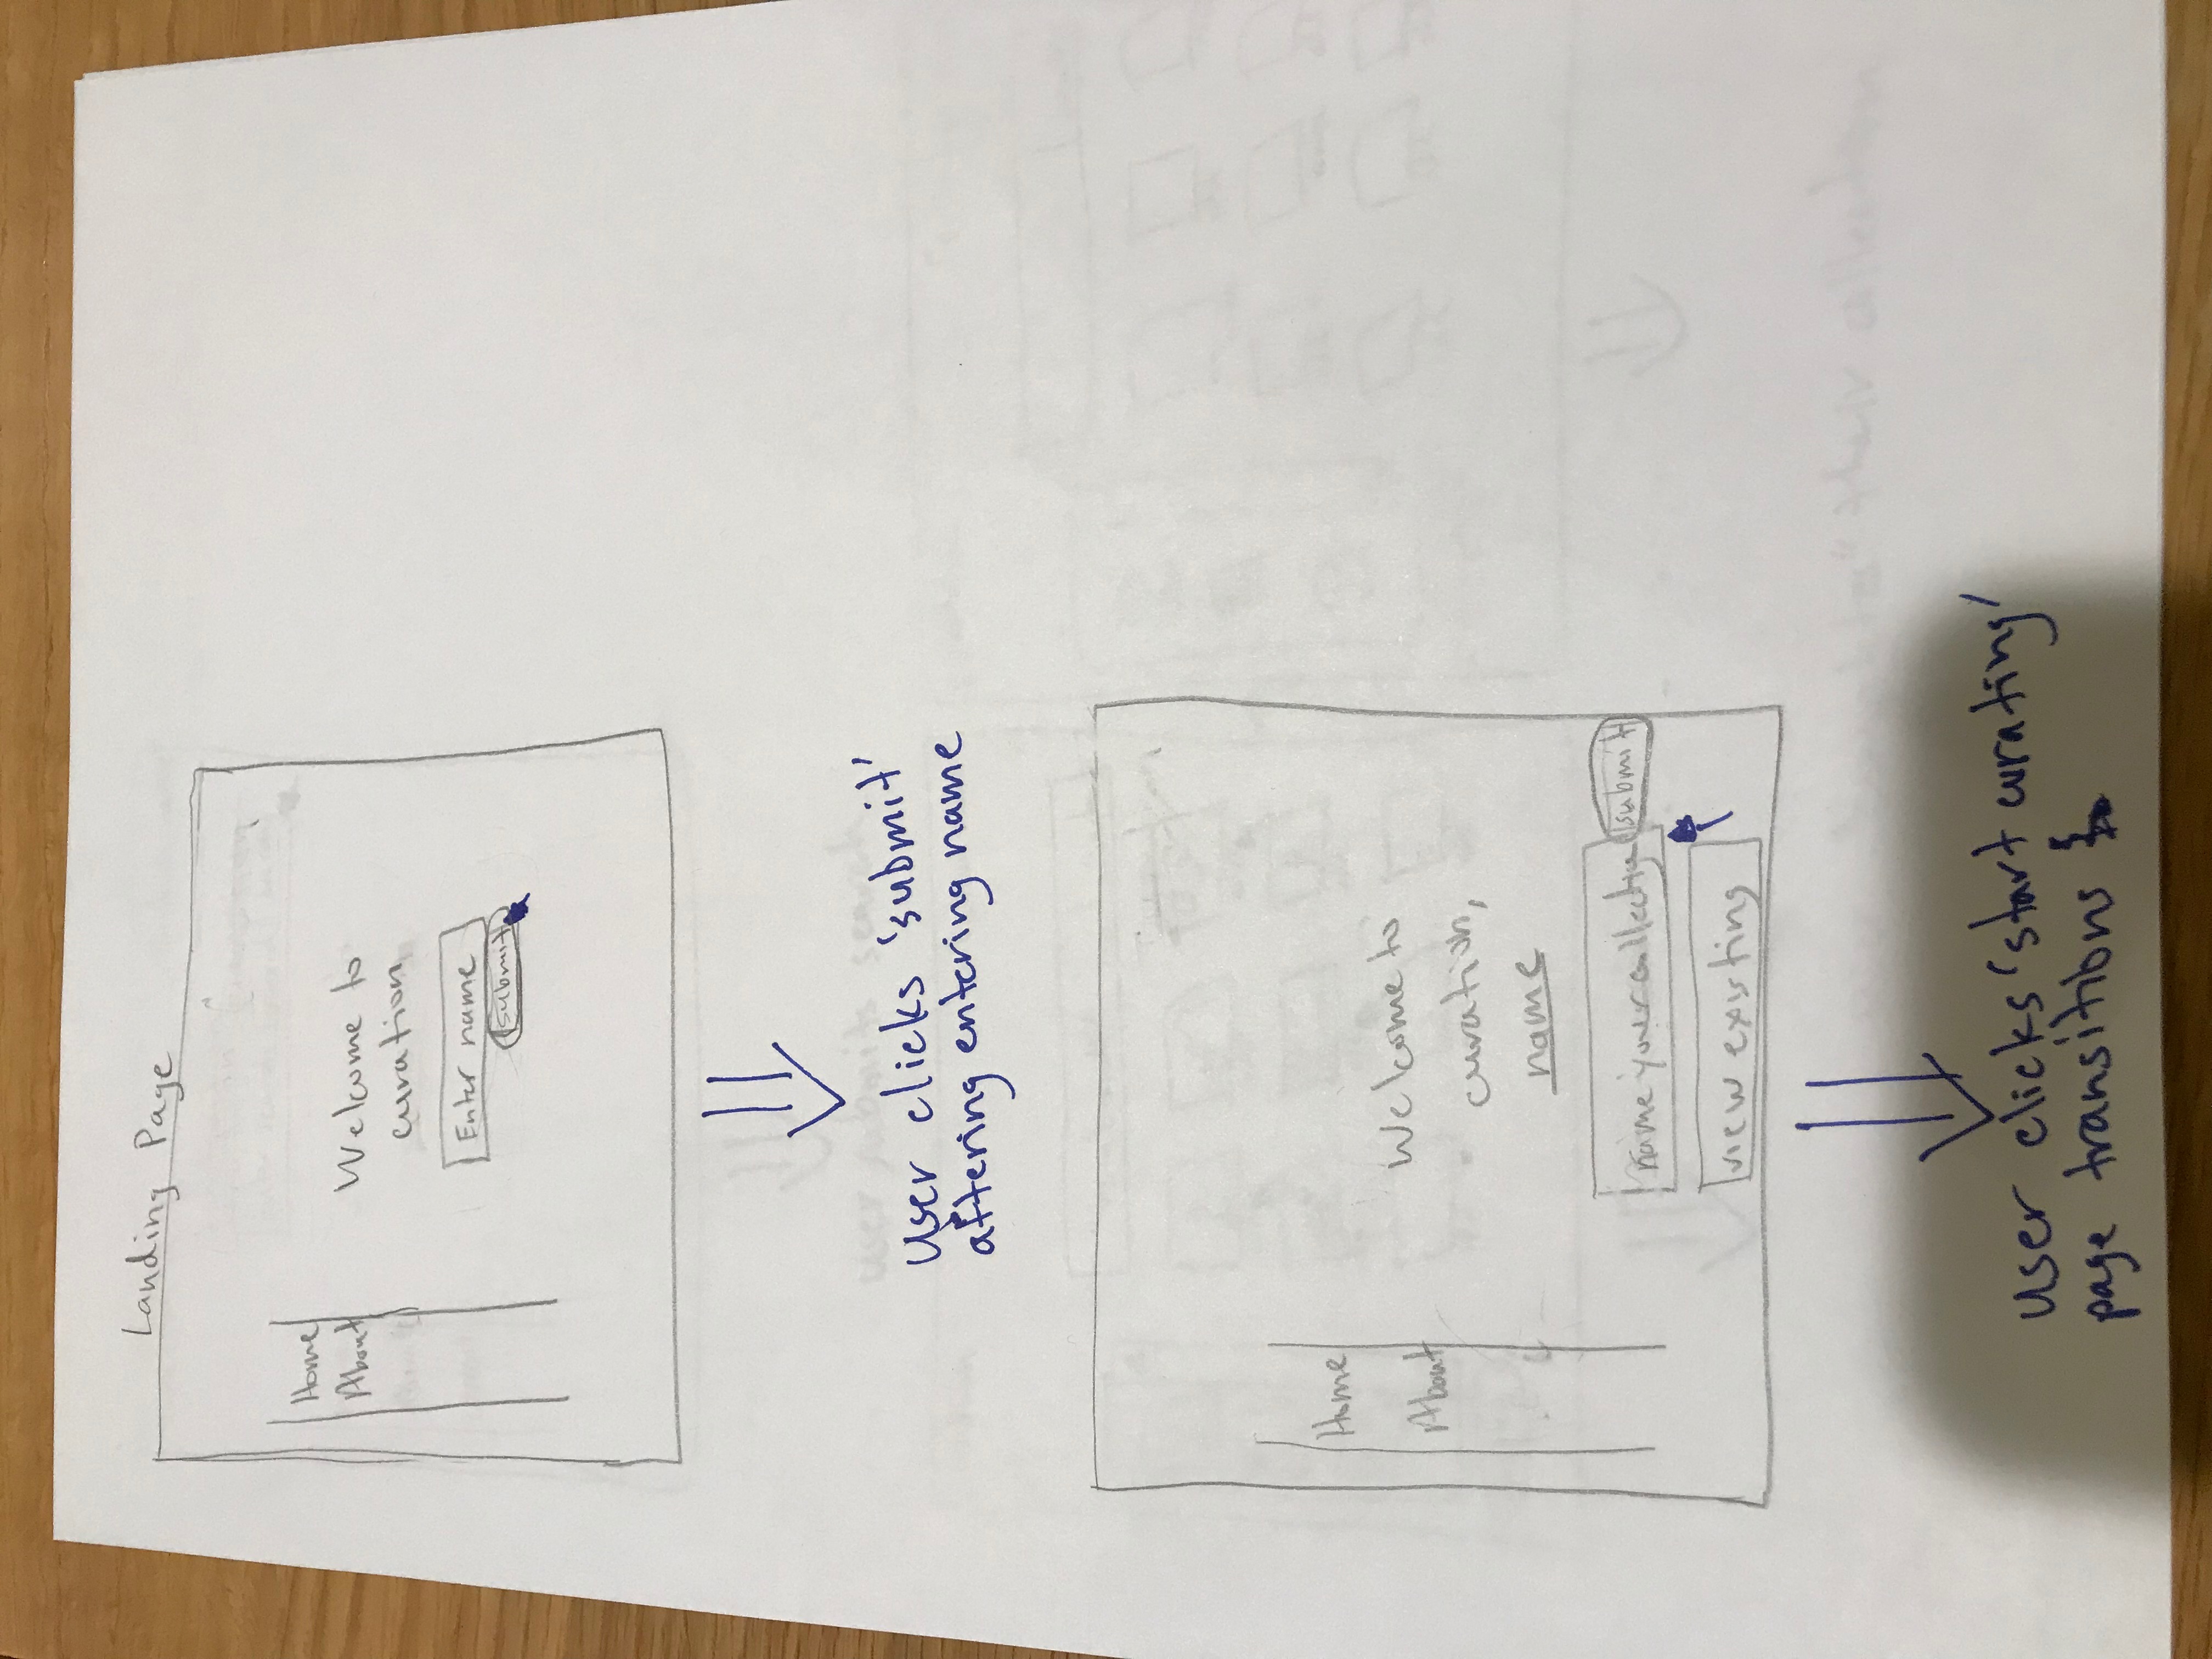 Landing Page
Home
About
Welcome to
curation
Enter name
submit
User clicks 'submit'
aftering entering name
user submits search
Home
About
Welcome to
curation,
name
name your collection
submit
view existing
their collection
user clicks 'start curating'
page transitions